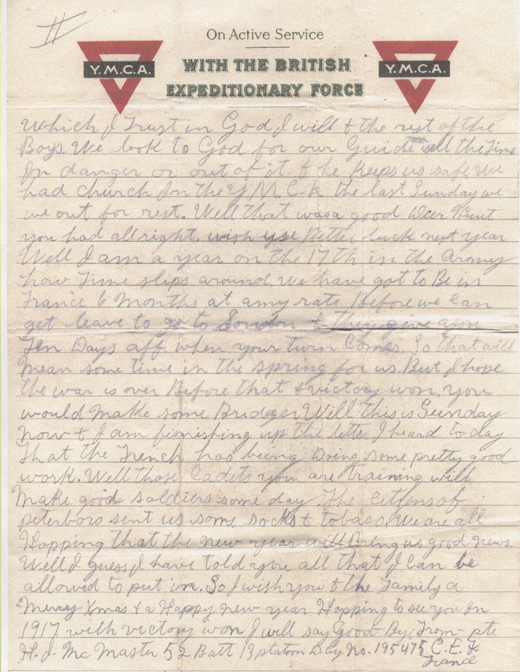 II
On Active Service
Y.M.C.A. WITH THE BRITISH Y.M.C.A.
EXPEDITIONARY FORCE
Which I Trust in God I will & the rest of the
Boys. We look to God for our Guide all the Time
In danger or out of it & he Keeps us safe We
had church In the Y M.C.A the last Sunday we
we out for rest. Well that was a good Deer Hunt
you had allright. wish use Beth. luck next year
Well I am a year on the 17th in the Army
how Time slips around. We have got to Be in
France 6 Months at amy rate Before we Can
get leave to go to London & they give you
Ten Days off when your turn Comes. So that will
mean some time in the spring for us. But I hope
the war is over Before that & victory won. You
would make some Bridger. Well this is Sunday
now & I am finnishing up the letter I heard to day
That the French has being Doing some pretty good
work. Well those Cadets you are training will
make good soldiers some day. The Citizens of
peterboro sent us some socks & tobaco. We are all
Hopping that the new year will bring us good news.
Well I guess I have told you all that I can be
allowed to put in. So I wish you & the family a
Merry Xmas & a Happy new year Hopping to see you In
1917 with victory won I will say Good By. From
H.J. Mc Master 52 Batt B platoon D Coy No. 195475 C.E.F
France